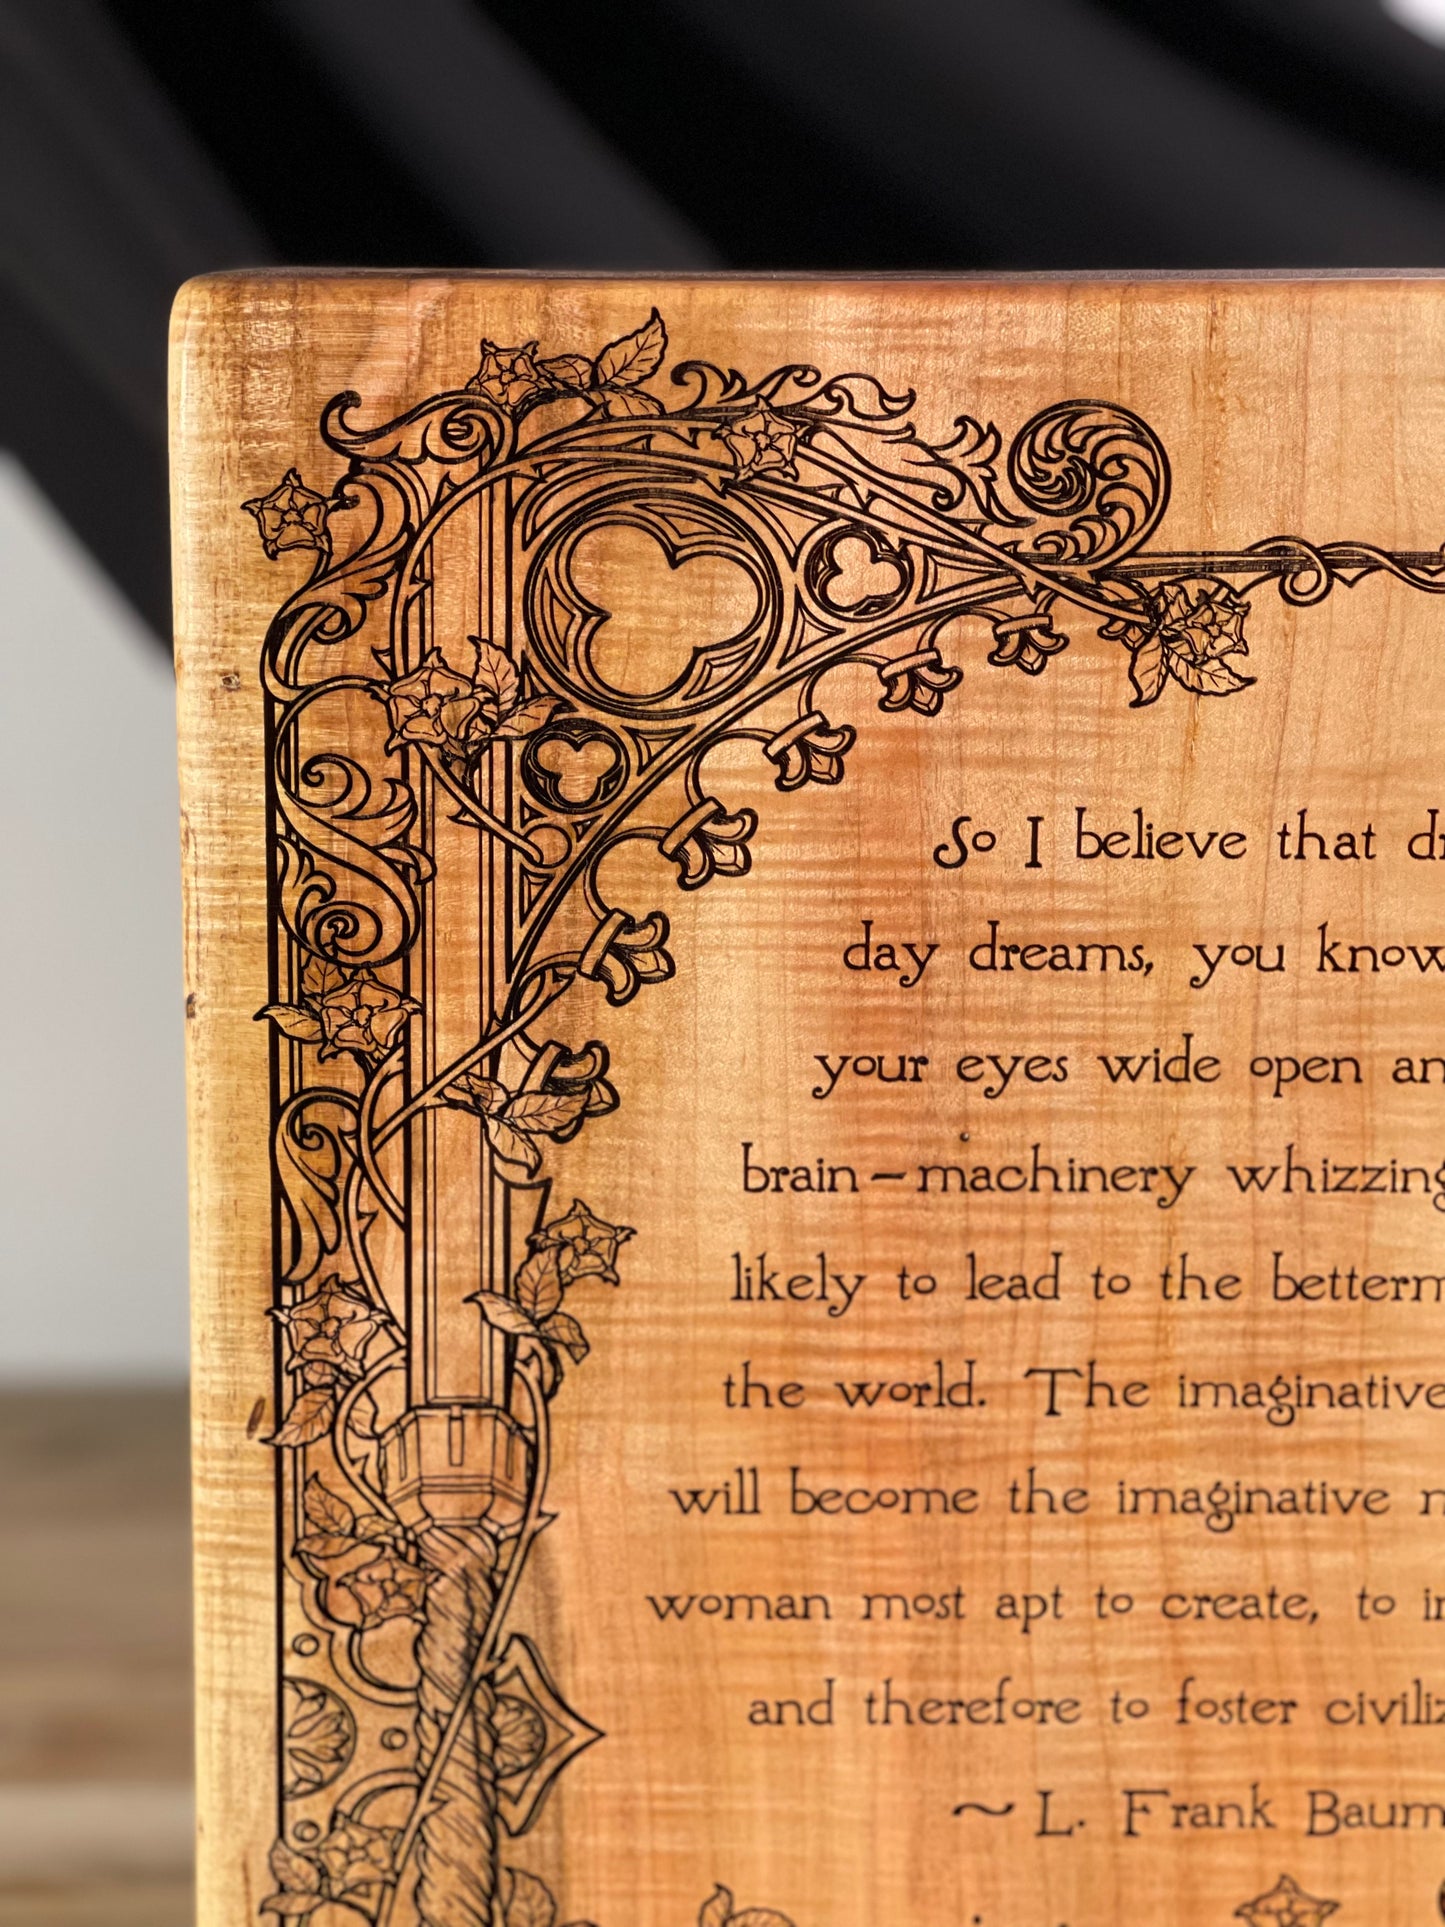 So I believe that dr
day dreams, you know
your eyes wide open an
brain-machinery whizzing
likely to lead to the betterm
the world. The imaginative
will become the imaginative m
woman most apt to create, to in
and therefore to foster civiliz
~ L. Frank Baum